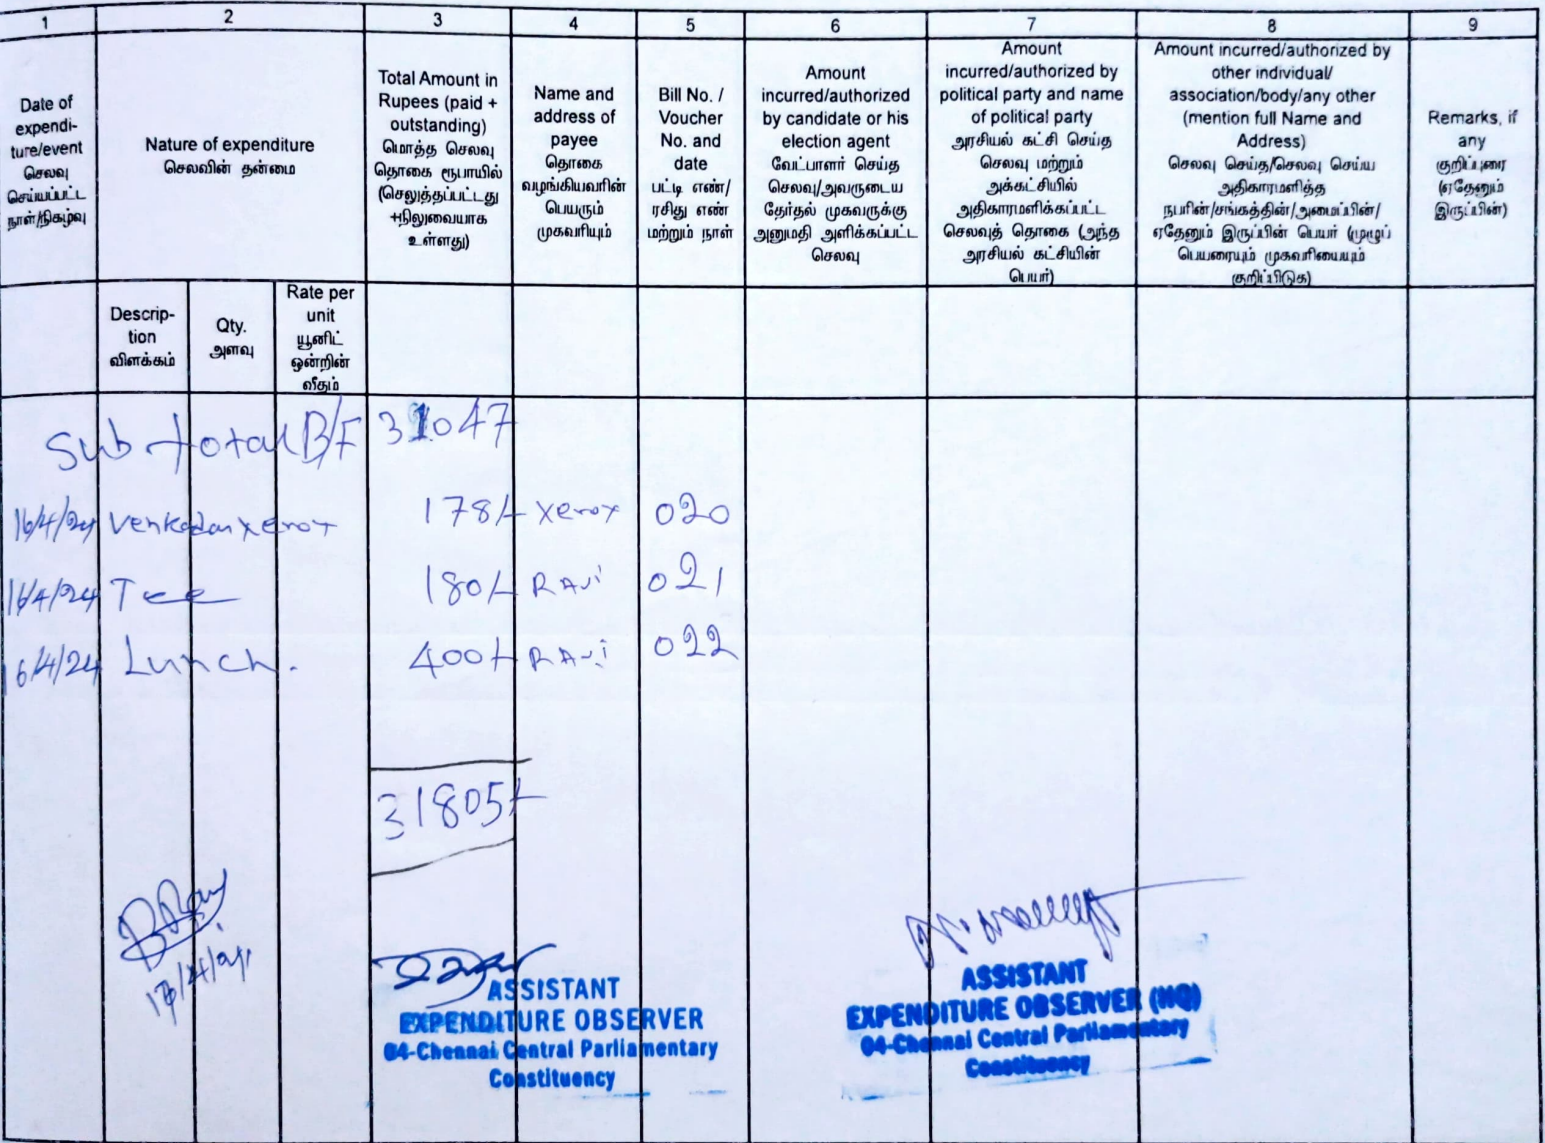 1 2 3 4 5 6 7 8 9
Date of
expendi-
ture/event
செலவு
செய்யப்பட்ட
நாள்/நிகழ்வு
Nature of expenditure
செலவின் தன்மை
Total Amount in
Rupees (paid +
outstanding)
மொத்த செலவு
தொகை ரூபாயில்
(செலுத்தப்பட்டது
+நிலுவையாக
உள்ளது)
Name and
address of
payee
தொகை
வழங்கியவரின்
பெயரும்
முகவரியும்
Bill No. /
Voucher
No. and
date
பட்டி எண்/
ரசிது எண்
மற்றும் நாள்
Amount
incurred/authorized
by candidate or his
election agent
வேட்பாளர் செய்த
செலவு/அவருடைய
தேர்தல் முகவருக்கு
அனுமதி அளிக்கப்பட்ட
செலவு
Amount
incurred/authorized by
political party and name
of political party
அரசியல் கட்சி செய்த
செலவு மற்றும்
அக்கட்சியில்
அதிகாரமளிக்கப்பட்ட
செலவுத் தொகை (அந்த
அரசியல் கட்சியின்
பெயர்)
Amount incurred/authorized by
other individual/
association/body/any other
(mention full Name and
Address)
செலவு செய்த/செலவு செய்ய
அதிகாரமளித்த
நபரின்/சங்கத்தின்/அமைப்பின்/
ஏதேனும் இருப்பின் பெயர் (முழுப்
பெயரையும் முகவரியையும்
குறிப்பிடுக)
Remarks, if
any
குறிப்புரை
(ஏதேனும்
இருப்பின்)
Descrip-
tion
விளக்கம்
Qty.
அளவு
Rate per
unit
யூனிட்
ஒன்றின்
வீதம்
Sub total B/F 31047
16/4/24 Venkadan xerox 178/- xerox 020
16/4/24 Tee 180/- RAvi 021
16/4/24 Lunch. 400/- RAvi 022
31805/-
ASSISTANT
EXPENDITURE OBSERVER
04-Chennai Central Parliamentary
Constituency
ASSISTANT
EXPENDITURE OBSERVER (HQ)
04-Chennai Central Parliamentary
Constituency